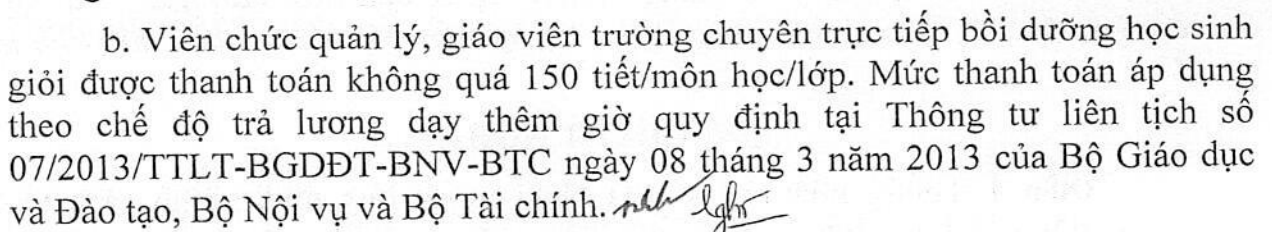 b. Viên chức quản lý, giáo viên trường chuyên trực tiếp bồi dưỡng học sinh
giỏi được thanh toán không quá 150 tiết/môn học/lớp. Mức thanh toán áp dụng
theo chế độ trả lương dạy thêm giờ quy định tại Thông tư liên tịch số
07/2013/TTLT-BGDĐT-BNV-BTC ngày 08 tháng 3 năm 2013 của Bộ Giáo dục
và Đào tạo, Bộ Nội vụ và Bộ Tài chính.